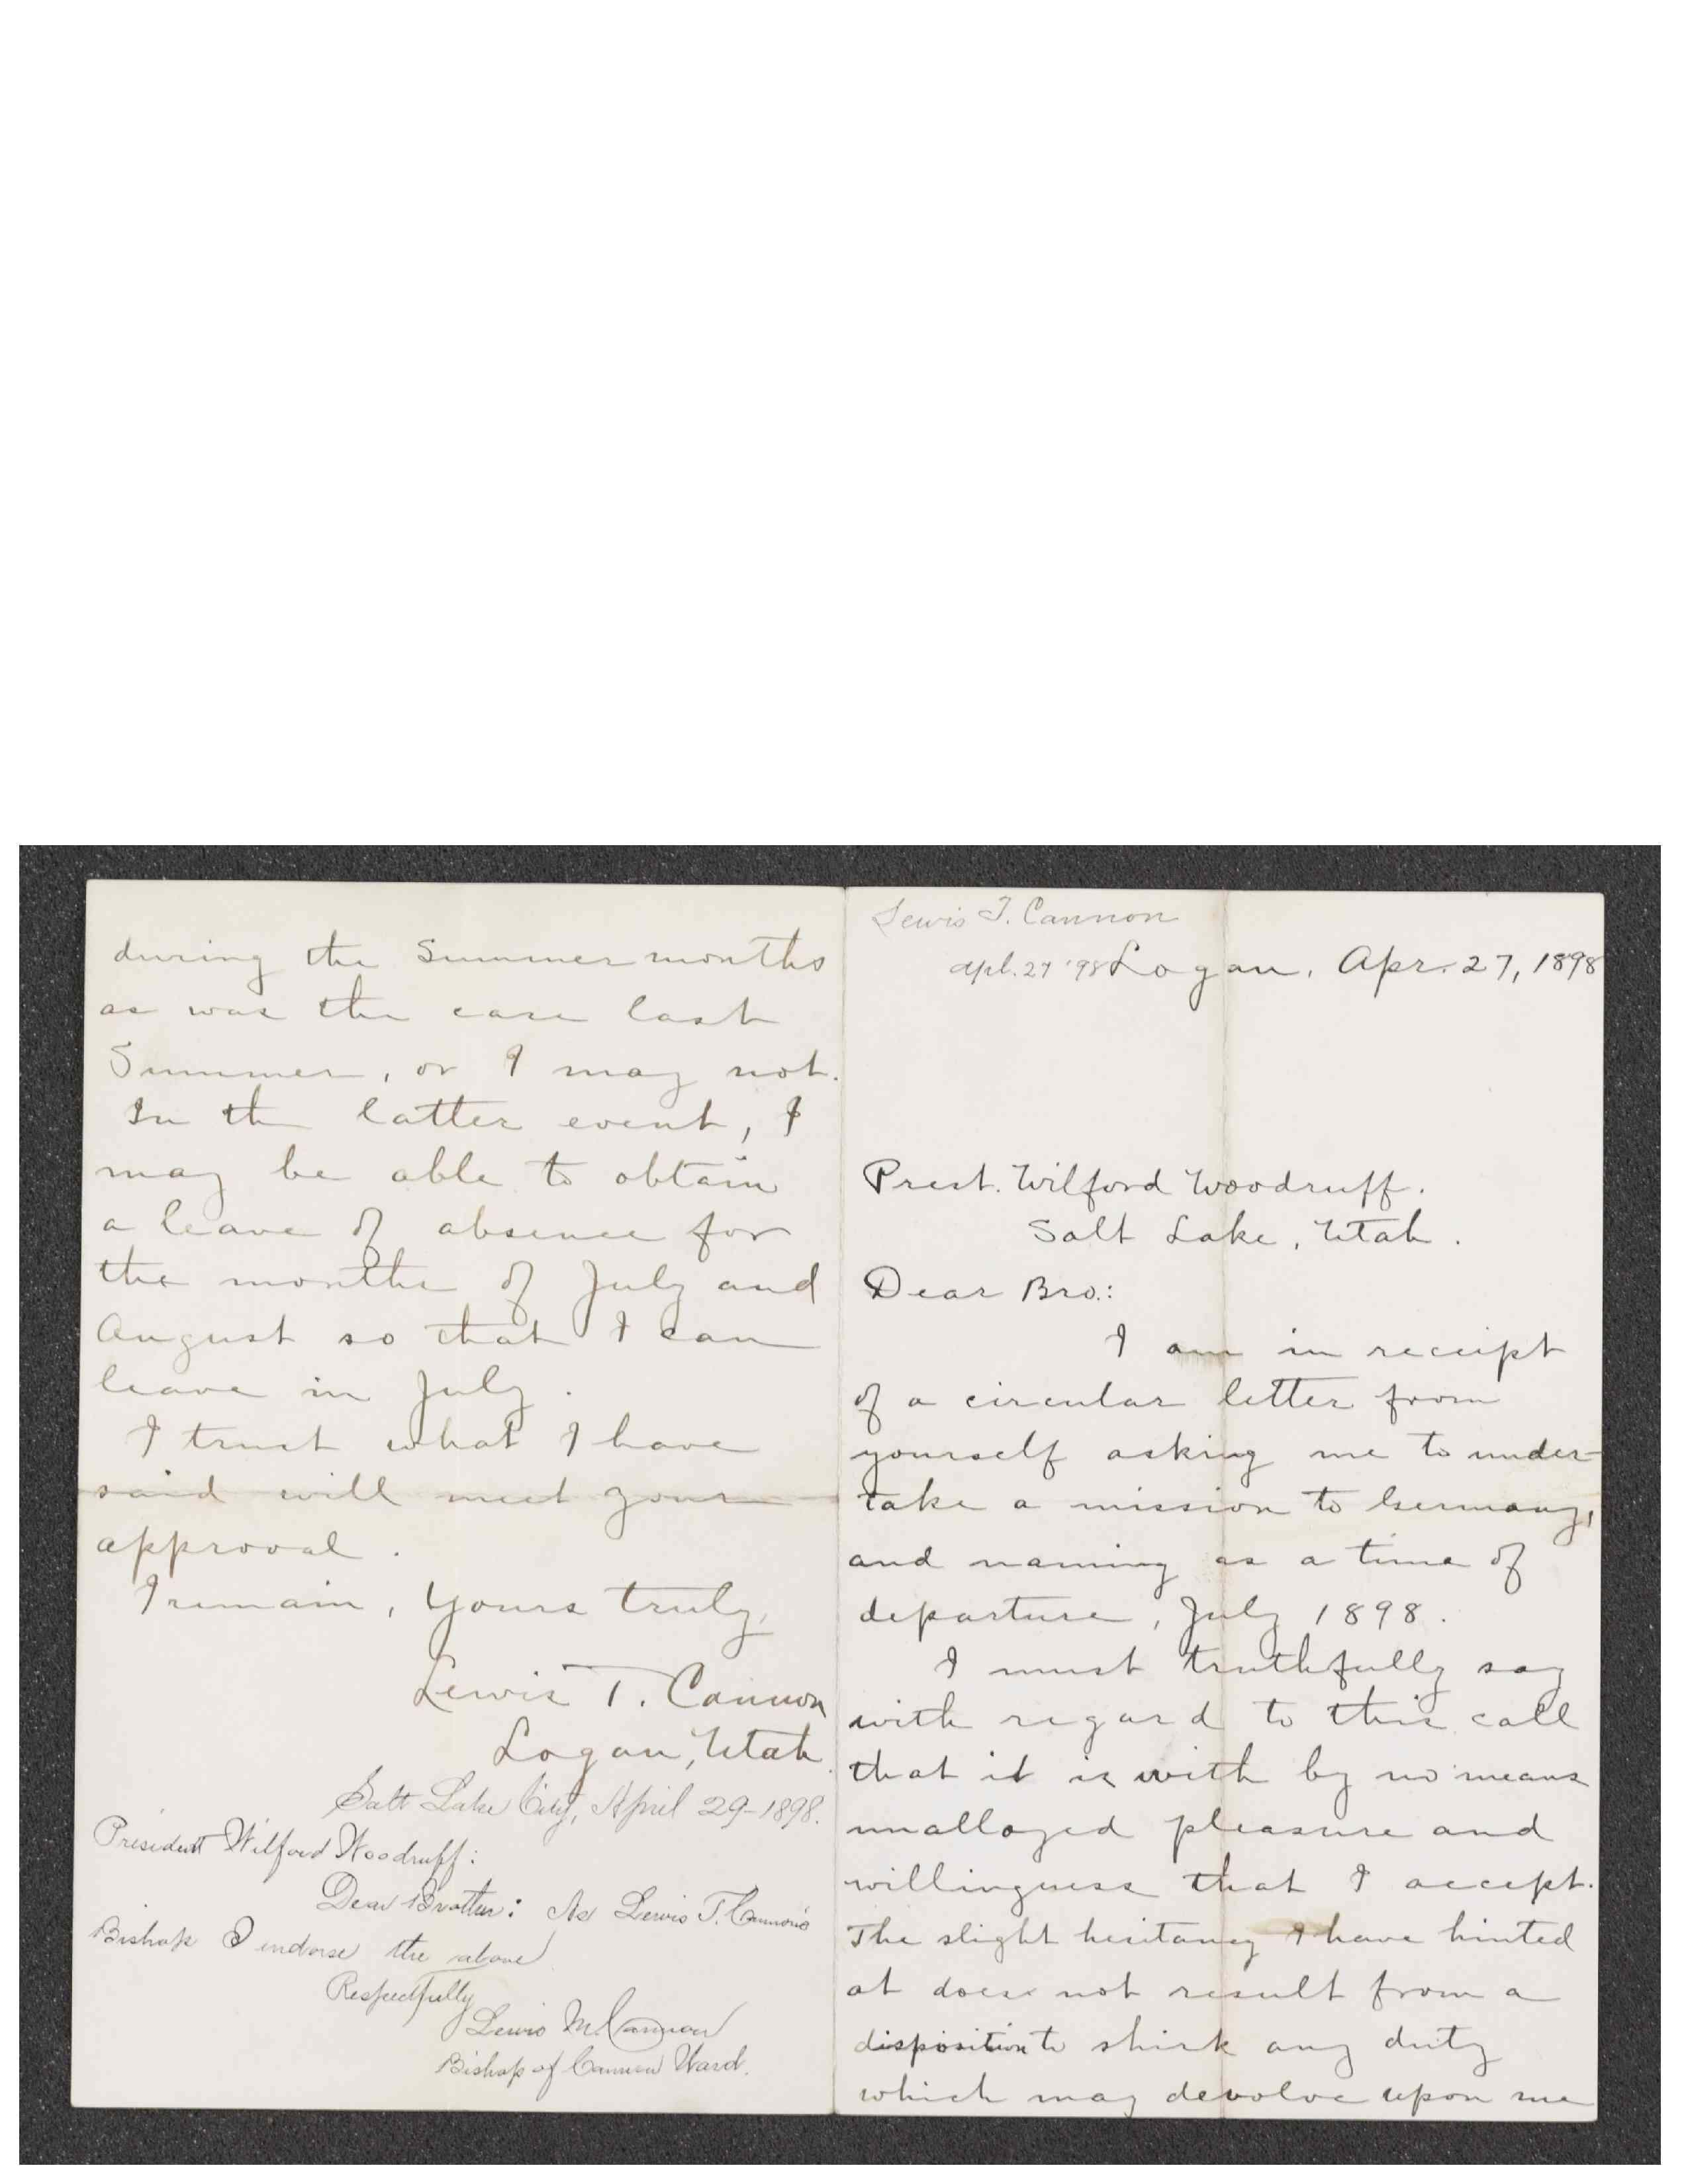 Lewis T. Cannon
Apl. 27 '98
Logan, Apr. 27, 1898
Prest. Wilford Woodruff.
Salt Lake, Utah.
Dear Bro.:
I am in receipt
of a circular letter from
yourself asking me to under-
take a mission to Germany,
and naming as a time of
departure, July 1898.
I must truthfully say
with regard to this call
that it is with by no means
unalloyed pleasure and
willingness that I accept.
The slight hesitancy I have hinted
at does not result from a
disposition to shirk any duty
which may devolve upon me
during the Summer months
as was the case last
Summer, or I may not.
In the latter event, I
may be able to obtain
a leave of absence for
the months of July and
August so that I can
leave in July.
I trust what I have
said will meet your
approval.
I remain, Yours truly,
Lewis T. Cannon
Logan, Utah.
Salt Lake City, April 29-1898.
President Wilford Woodruff:
Dear Brother: As Lewis T. Cannon's
Bishop I endorse the above
Respectfully
Lewis M. Cannon
Bishop of Cannon Ward.